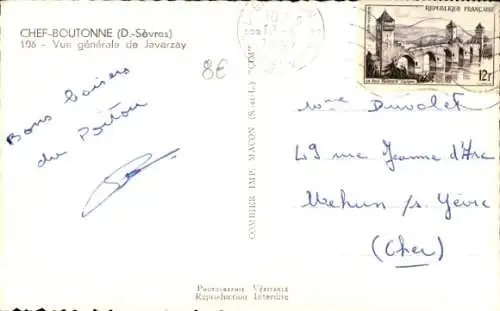 CHEF-BOUTONNE (D.-Sèvres)
106 - Vue générale de Javarzay
8€
Bons baisers
du Poitou
COMBIER IMP. MACON (S.-et-L.)
REPUBLIQUE FRANÇAISE
12f
Mme Durolet
49 rue Jeanne d'Arc
Mehun s/s Yèvre
(Cher)
Photographie Véritable
Reproduction Interdite